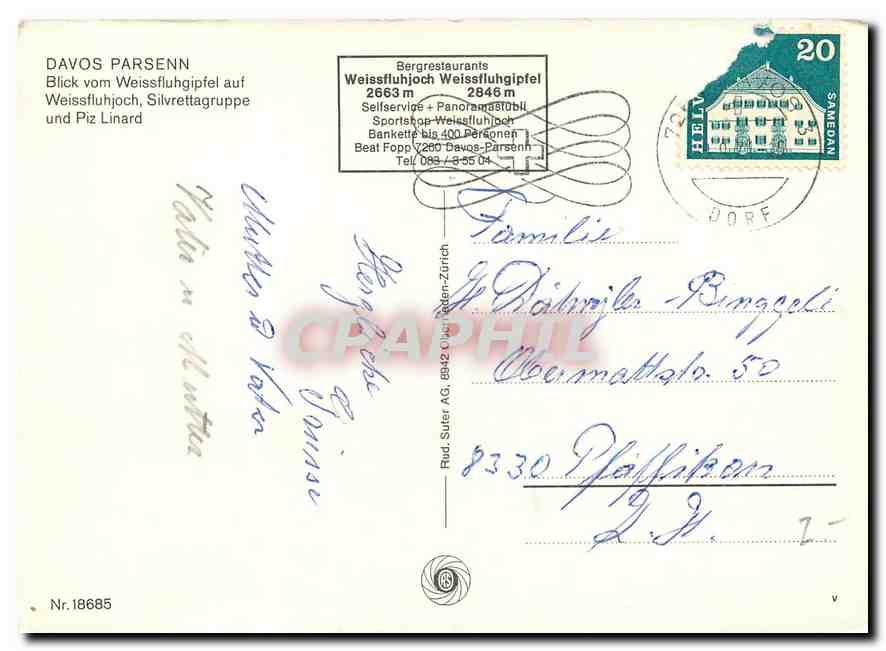 DAVOS PARSENN
Blick vom Weissfluhgipfel auf
Weissfluhjoch, Silvrettagruppe
und Piz Linard
Bergrestaurants
Weissfluhjoch Weissfluhgipfel
2663 m 2846 m
Selfservice + Panoramastübli
Sportshop Weissfluhjoch
Bankette bis 400 Personen
Beat Fopp 7260 Davos-Parsenn
Tel. 083 / 3 55 04
20
HELV
SAMEDAN
DORF
Familie
H. Dätwyler-Binggeli
Obermattstr. 50
8330 Pfäffikon
Z.H.
Herzliche
Grüsse
Mutter u Vater
Vater u Mutter
Rud. Suter AG, 8942 Oberrieden-Zürich
CPAPHIL
RS
Nr. 18685
v
2-